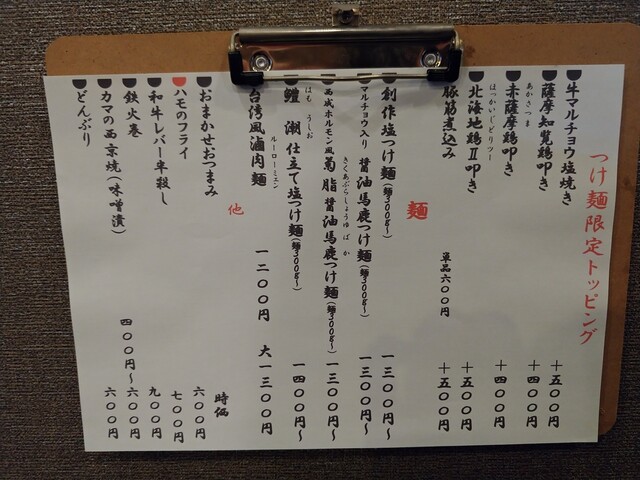 つけ麺限定トッピング
牛マルチョウ塩焼き 十五〇〇円
薩摩知覧鶏叩き 十四〇〇円
あかさつま
赤薩摩鶏叩き 十四〇〇円
ほっかいじどりツー
北海地鶏Ⅱ叩き 十五〇〇円
豚筋煮込み 単品六〇〇円 十五〇〇円
麺
創作塩つけ麺(麺300g〜) 一三〇〇円〜
マルチョウ入り 醤油馬鹿つけ麺(麺300g〜) 一三〇〇円〜
きくあぶらしょうゆばか
西成ホルモン風菊脂醤油馬鹿つけ麺(麺300g〜) 一三〇〇円〜
はも うしお
鱧潮仕立て塩つけ麺(麺300g〜) 一四〇〇円〜
ルーローミェン
台湾風滷肉麺 一二〇〇円 大一三〇〇円
他
おまかせおつまみ 時価
ハモのフライ 六〇〇円
和牛レバー半殺し 七〇〇円
鉄火巻 九〇〇円
カマの西京焼(味噌漬) 四〇〇円〜六〇〇円
どんぶり 六〇〇円